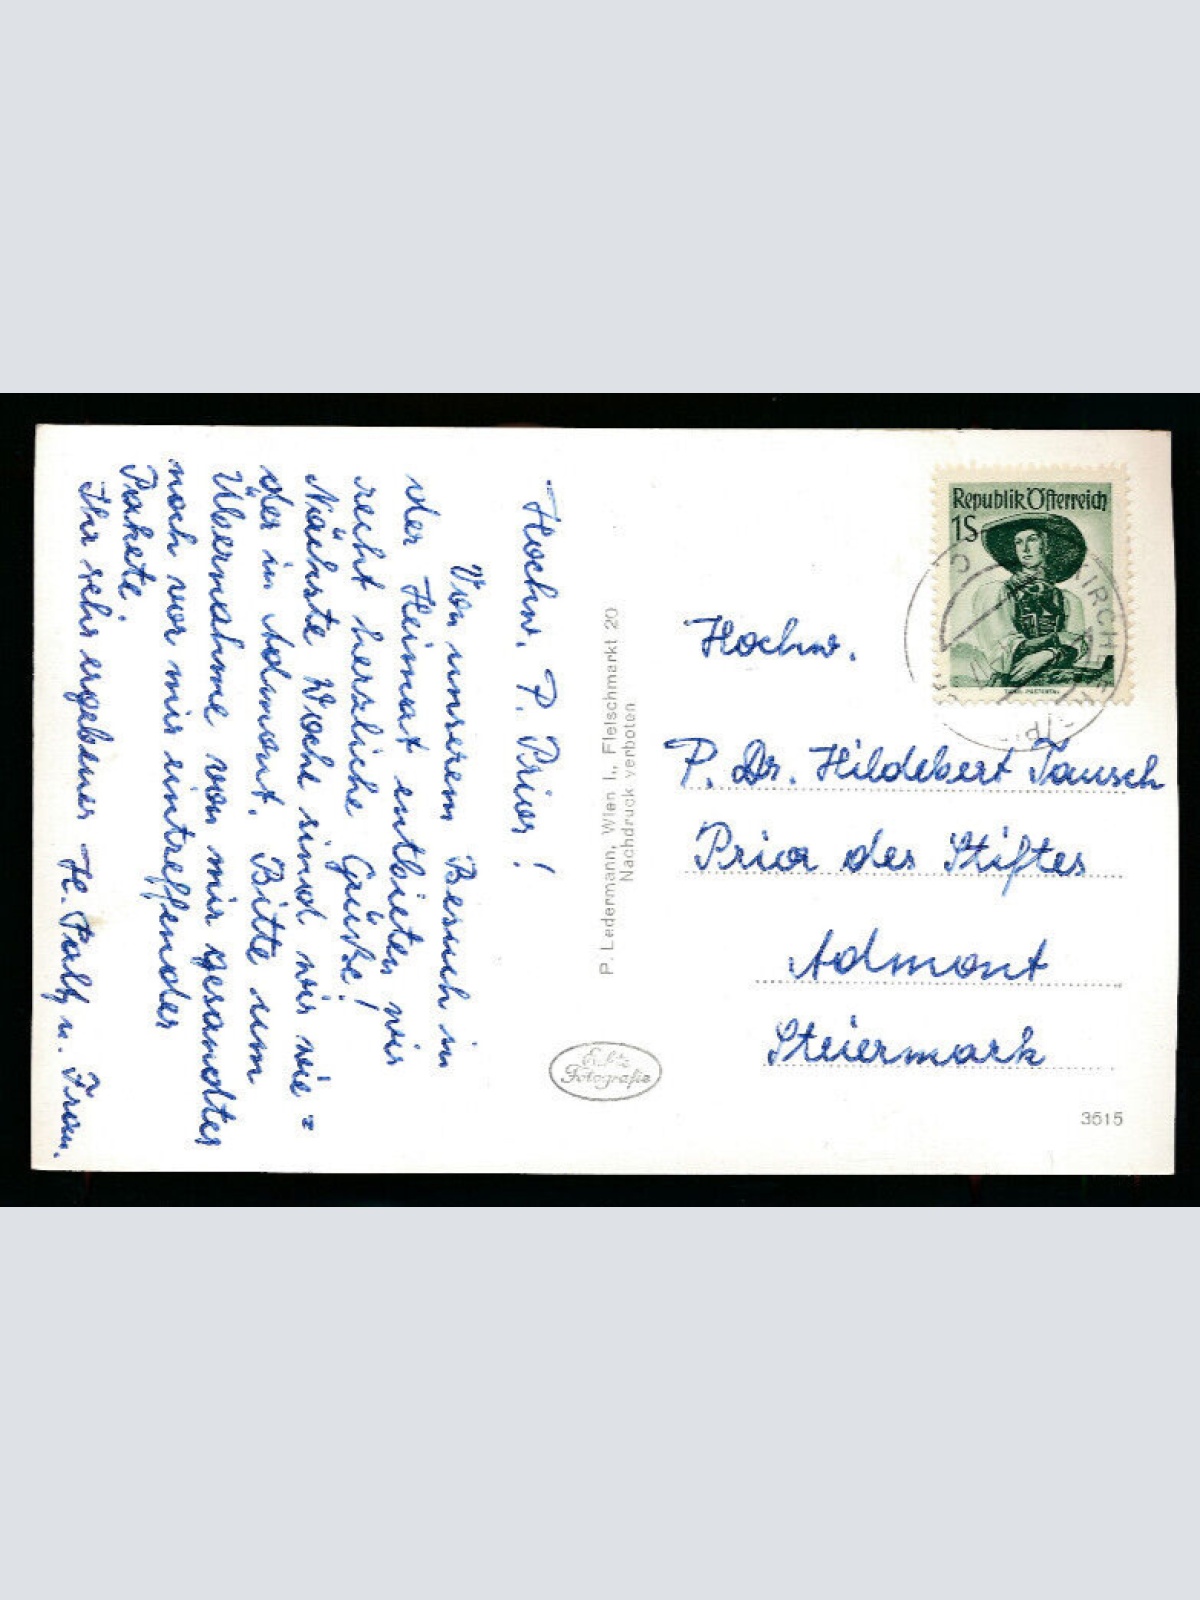 Hochw. P. Prior!
Von unserem Besuch in
der Heimat entbieten wir
recht herzliche Grüße!
Nächste Woche sind wir wie=
der in Admont. Bitte um
Übernahme von mir gesandter
noch vor mir eintreffender
Pakete.
Ihr sehr ergebener H. u. Frau.
P. Ledermann, Wien I., Fleischmarkt 20
Nachdruck verboten
Echte
Fotografie
Republik Österreich
1S
TIROL, PUSTERTAL
KIRCH
Hochw.
P. Dr. Hildebert Tausch
Prior des Stiftes
Admont
Steiermark
3515